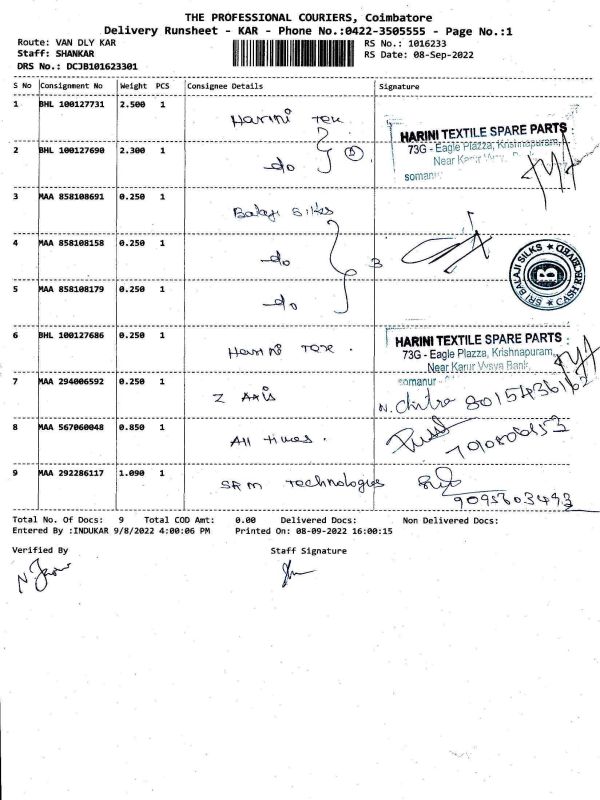 THE PROFESSIONAL COURIERS, Coimbatore
Delivery Runsheet - KAR - Phone No.:0422-3505555 - Page No.:1
Route: VAN DLY KAR
RS No.: 1016233
Staff: SHANKAR
RS Date: 08-Sep-2022
DRS No.: DCJB101623301
S No Consignment No Weight PCS Consignee Details Signature
1 BHL 100127731 2.500 1 Harini Tex.
HARINI TEXTILE SPARE PARTS
73G - Eagle Plazza, Krishnapuram,
2 BHL 100127690 2.300 1 do
Near Karur
somanur
3 MAA 858108691 0.250 1 Balaji Silks
4 MAA 858108158 0.250 1 do 3
SRI BALAJI SILKS ★ CASH RECEIVED ★ B
5 MAA 858108179 0.250 1 do
6 BHL 100127686 0.250 1 Harini Tex.
HARINI TEXTILE SPARE PARTS
73G - Eagle Plazza, Krishnapuram,
Near Karur Vysya Bank,
7 MAA 294006592 0.250 1 Z Axis
somanur
N. Chitra 8015436162
8 MAA 567060048 0.850 1 All times.
9 MAA 292286117 1.090 1 SRM Technologies
9095603493
Total No. Of Docs: 9 Total COD Amt: 0.00 Delivered Docs: Non Delivered Docs:
Entered By :INDUKAR 9/8/2022 4:00:06 PM Printed On: 08-09-2022 16:00:15
Verified By Staff Signature